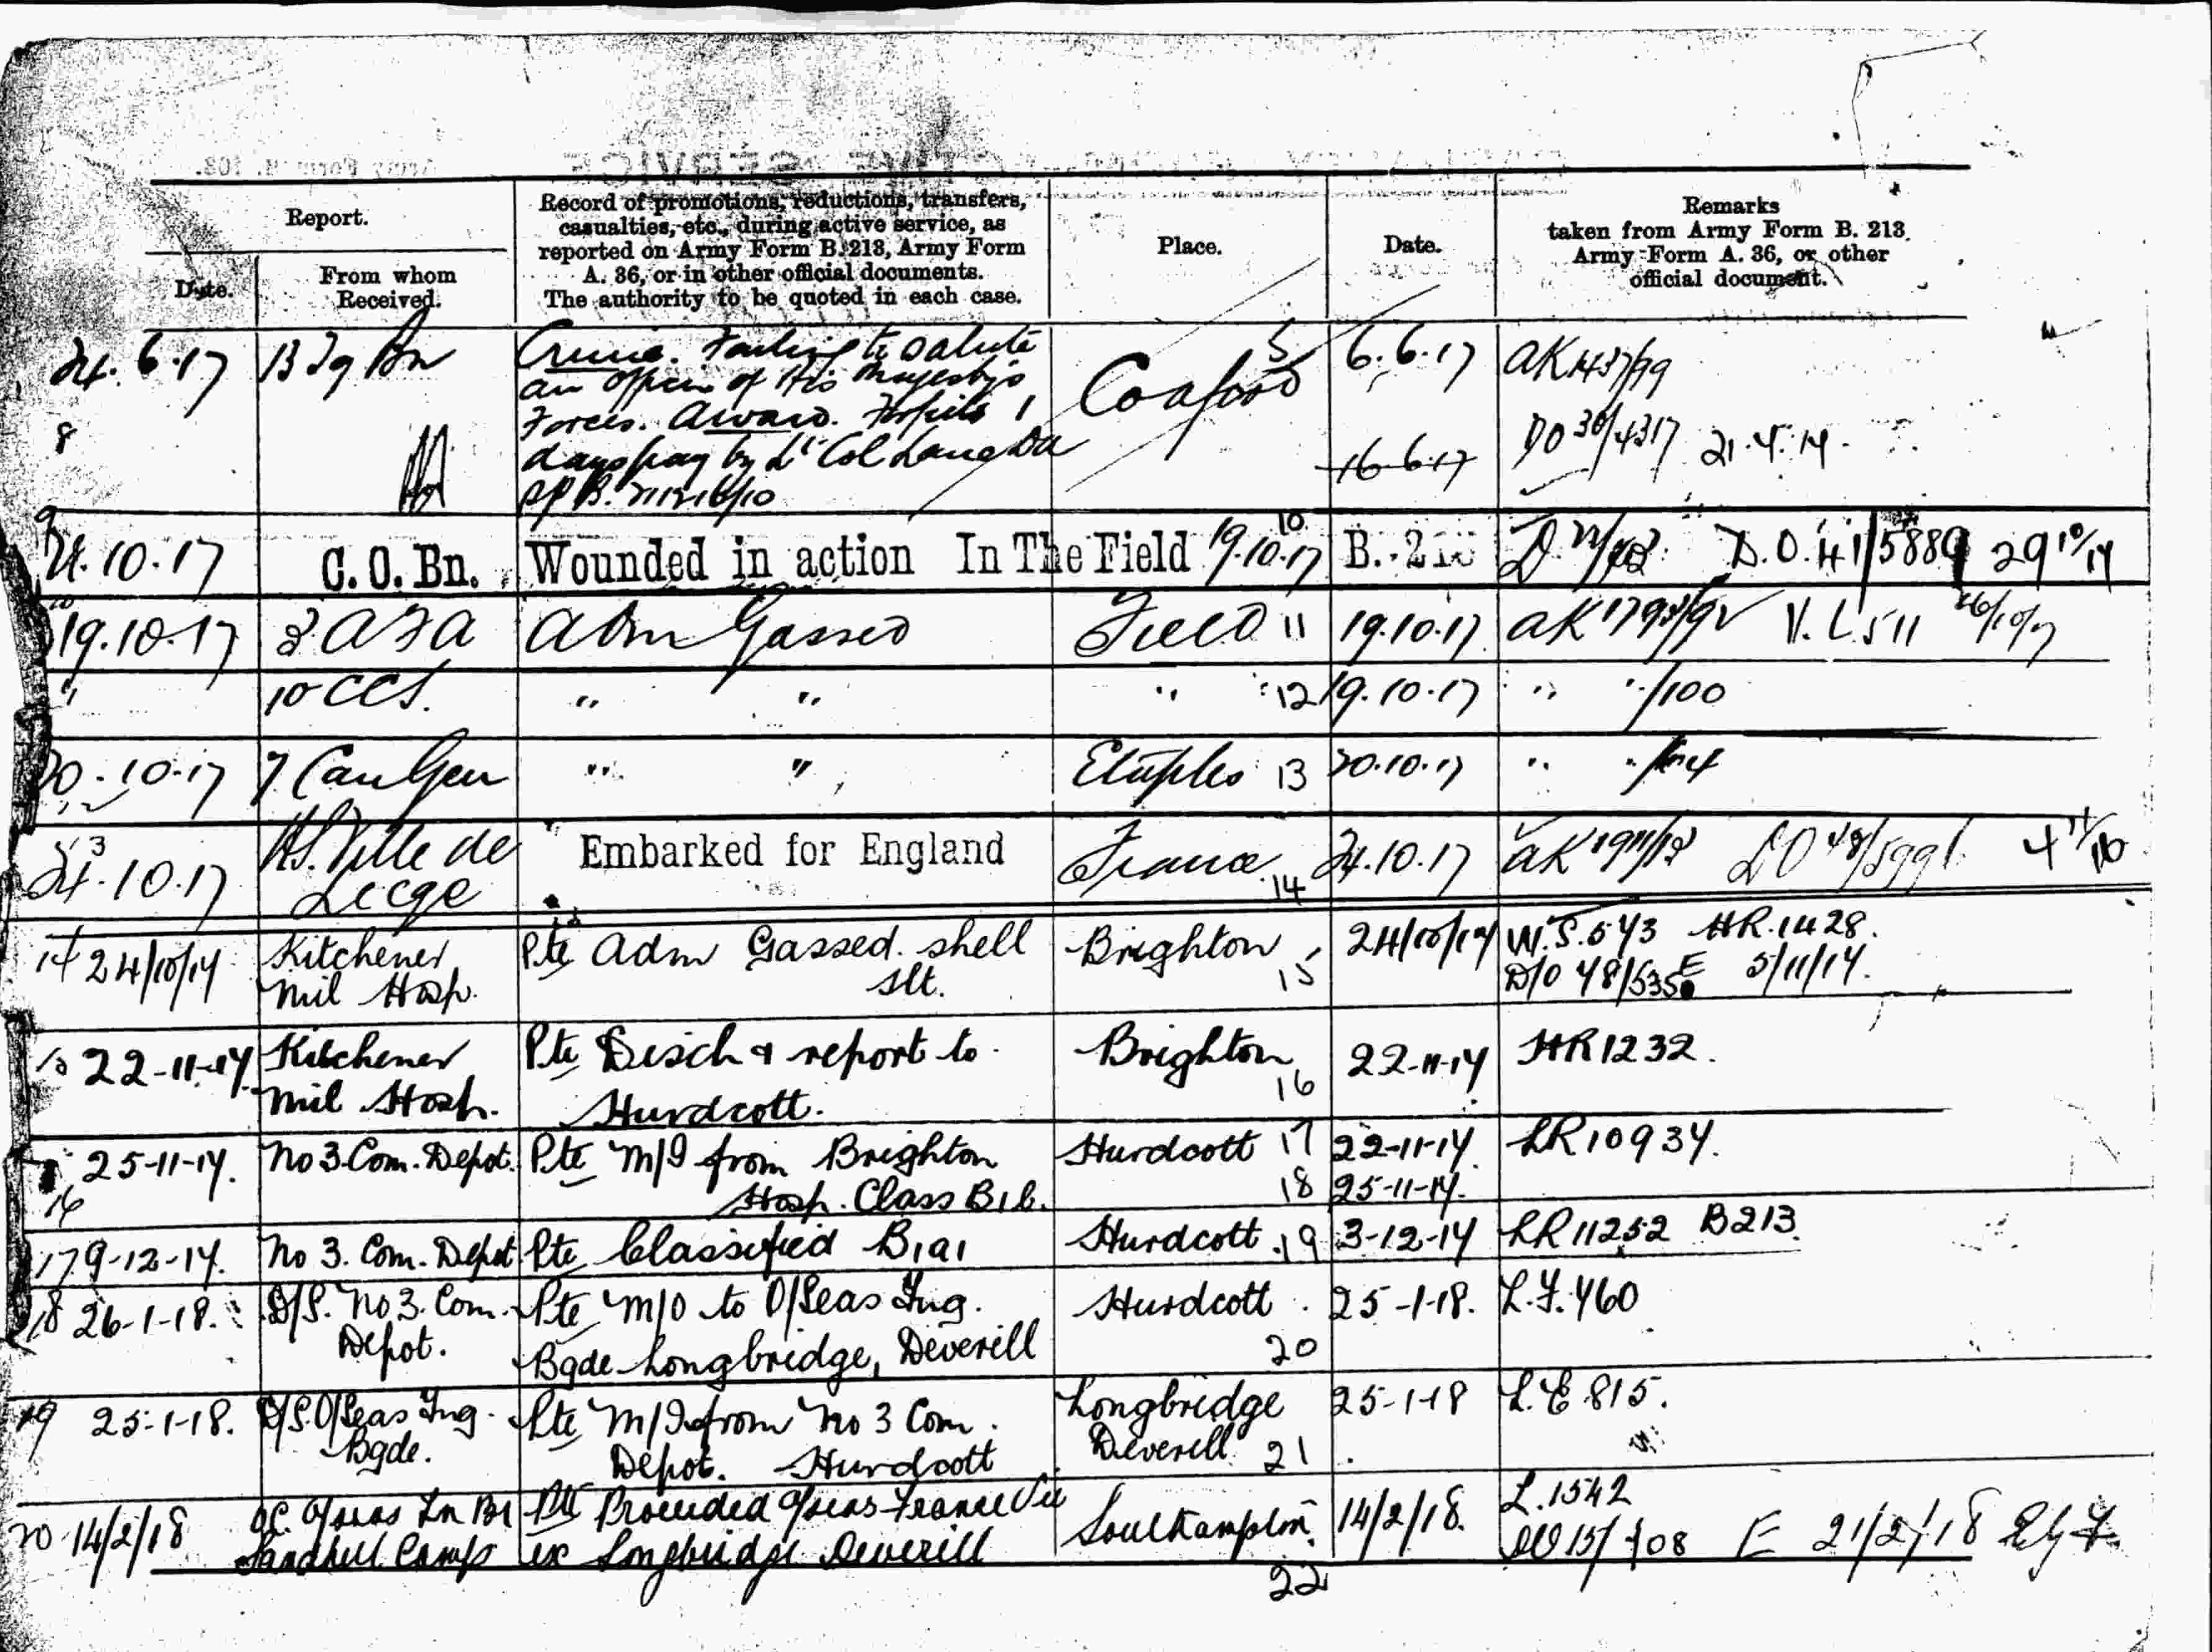 Report.
Date.
From whom
Received.
Record of promotions, reductions, transfers,
casualties, etc., during active service, as
reported on Army Form B. 213, Army Form
A. 36, or in other official documents.
The authority to be quoted in each case.
Place.
Date.
Remarks
taken from Army Form B. 213,
Army Form A. 36, or other
official document.
24.6.17 13 Tg Bn Crime. Failing to salute 5 6.6.17 AK1437/99
an Officer of His Majesty's Coaford
Forces. Award. Forfeits 1
8 days pay by Lt Col Lane 16-6-17 DO 36/4317 21.7.17
9
24.10.17 C.O. Bn. Wounded in action In The Field 19.10.17 10 B. 213 D.O. 41/5889 29 10/17
19.10.17 3 AFA Adm Gassed Field 11 19.10.17 AK 1793/92 V.L.511 26/10/17
" 10 CCS. " " " 12 19.10.17 " "/100
20-10-17 7 Can Gen " " Etaples 13 20.10.17 " "
13
24.10.17 H.S. Ville de Embarked for England France 24.10.17 AK 1911/12
Liege 14
14 24/10/17 Kitchener Pte Adm Gassed. shell Brighton 24/10/17 W.S.573 HR.1428.
Mil Hosp. slt. 15 D/O 78/535 E 5/11/17.
22-11-17 Kitchener Pte Disch & report to Brighton 22-11-17 HR1232.
Mil Hosp. Hurdcott. 16
25-11-17. No 3. Com. Depot. Pte M/I from Brighton Hurdcott 17 22-11-17. LR10937.
16 Hosp. Class B1b. 18 25-11-17.
17 9-12-17. No 3. Com. Depot Pte Classified B1a1 Hurdcott 19 3-12-17 LR11252 B213.
18 26-1-18. O/S. No 3. Com. Pte M/O to O/Seas Tng. Hurdcott 25-1-18. L.F.760
Depot. Bgde Longbridge, Deverill 20
19 25-1-18. O/S. O/Seas Tng. Pte M/I from No 3 Com. Longbridge 25-1-18 L.E.815.
Bgde. Depot. Hurdcott Deverill 21
20 14/2/18 OC. O/seas Tn Bde Pte Proceeded O/seas France Via Southampton 14/2/18. L.1542
Sandhill Camp ex Longbridge Deverill E 21/2/18
22